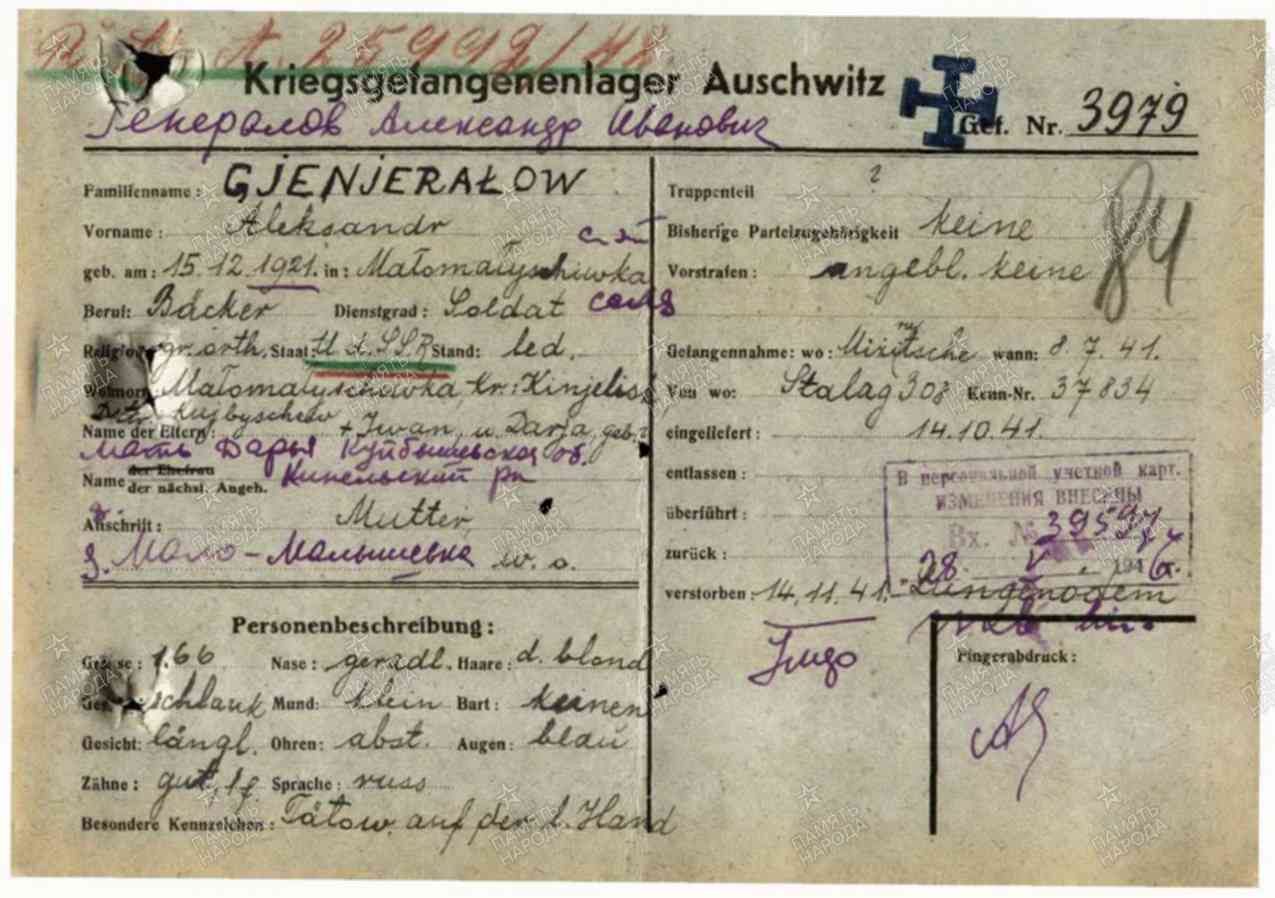 25992/42
Kriegsgefangenenlager Auschwitz
Gef. Nr. 3979
Генералов Александр Иванович
Familienname: GJENJERAŁOW
Vorname: Aleksandr
geb. am: 15.12.1921. in: Małomałyschiwka
Beruf: Bäcker Dienstgrad: Soldat солд
Religion: gr. orth. Staat: U.d.SSR Stand: led.
Wohnort: Małomałyschiwka Kr: Kinjelisś
Kujbyschew
Name der Eltern: + Iwan, u. Darja, geb.?
Мать Дарья Куйбышевская об.
Name der Ehefrau
der nächst. Angeh. Кинельский рн
Anschrift: Mutter,
Мало-Малышевка w. o.
Personenbeschreibung:
Grösse: 1.66 Nase: geradl. Haare: d. blond
schlank Mund: klein Bart: keinen
Gesicht: längl. Ohren: abst. Augen: blau
Zähne: gut, Sprache: russ
Besondere Kennzeichen: Tätow. auf der l. Hand
Truppenteil ?
Bisherige Parteizugehörigkeit keine
Vorstrafen: angebl. keine
84
Gefangennahme: wo: wann: 8.7.41.
Von wo: Stalag 308 Kenn-Nr. 37834
eingeliefert: 14.10.41.
entlassen:
überführt:
zurück:
verstorben: 14.11.41. Lungenödem
В персональной учетной карт.
ИЗМЕНЕНИЯ ВНЕСЕНЫ
Вх. №
28. V. 1946.
Fingerabdruck:
ПАМЯТЬ НАРОДА